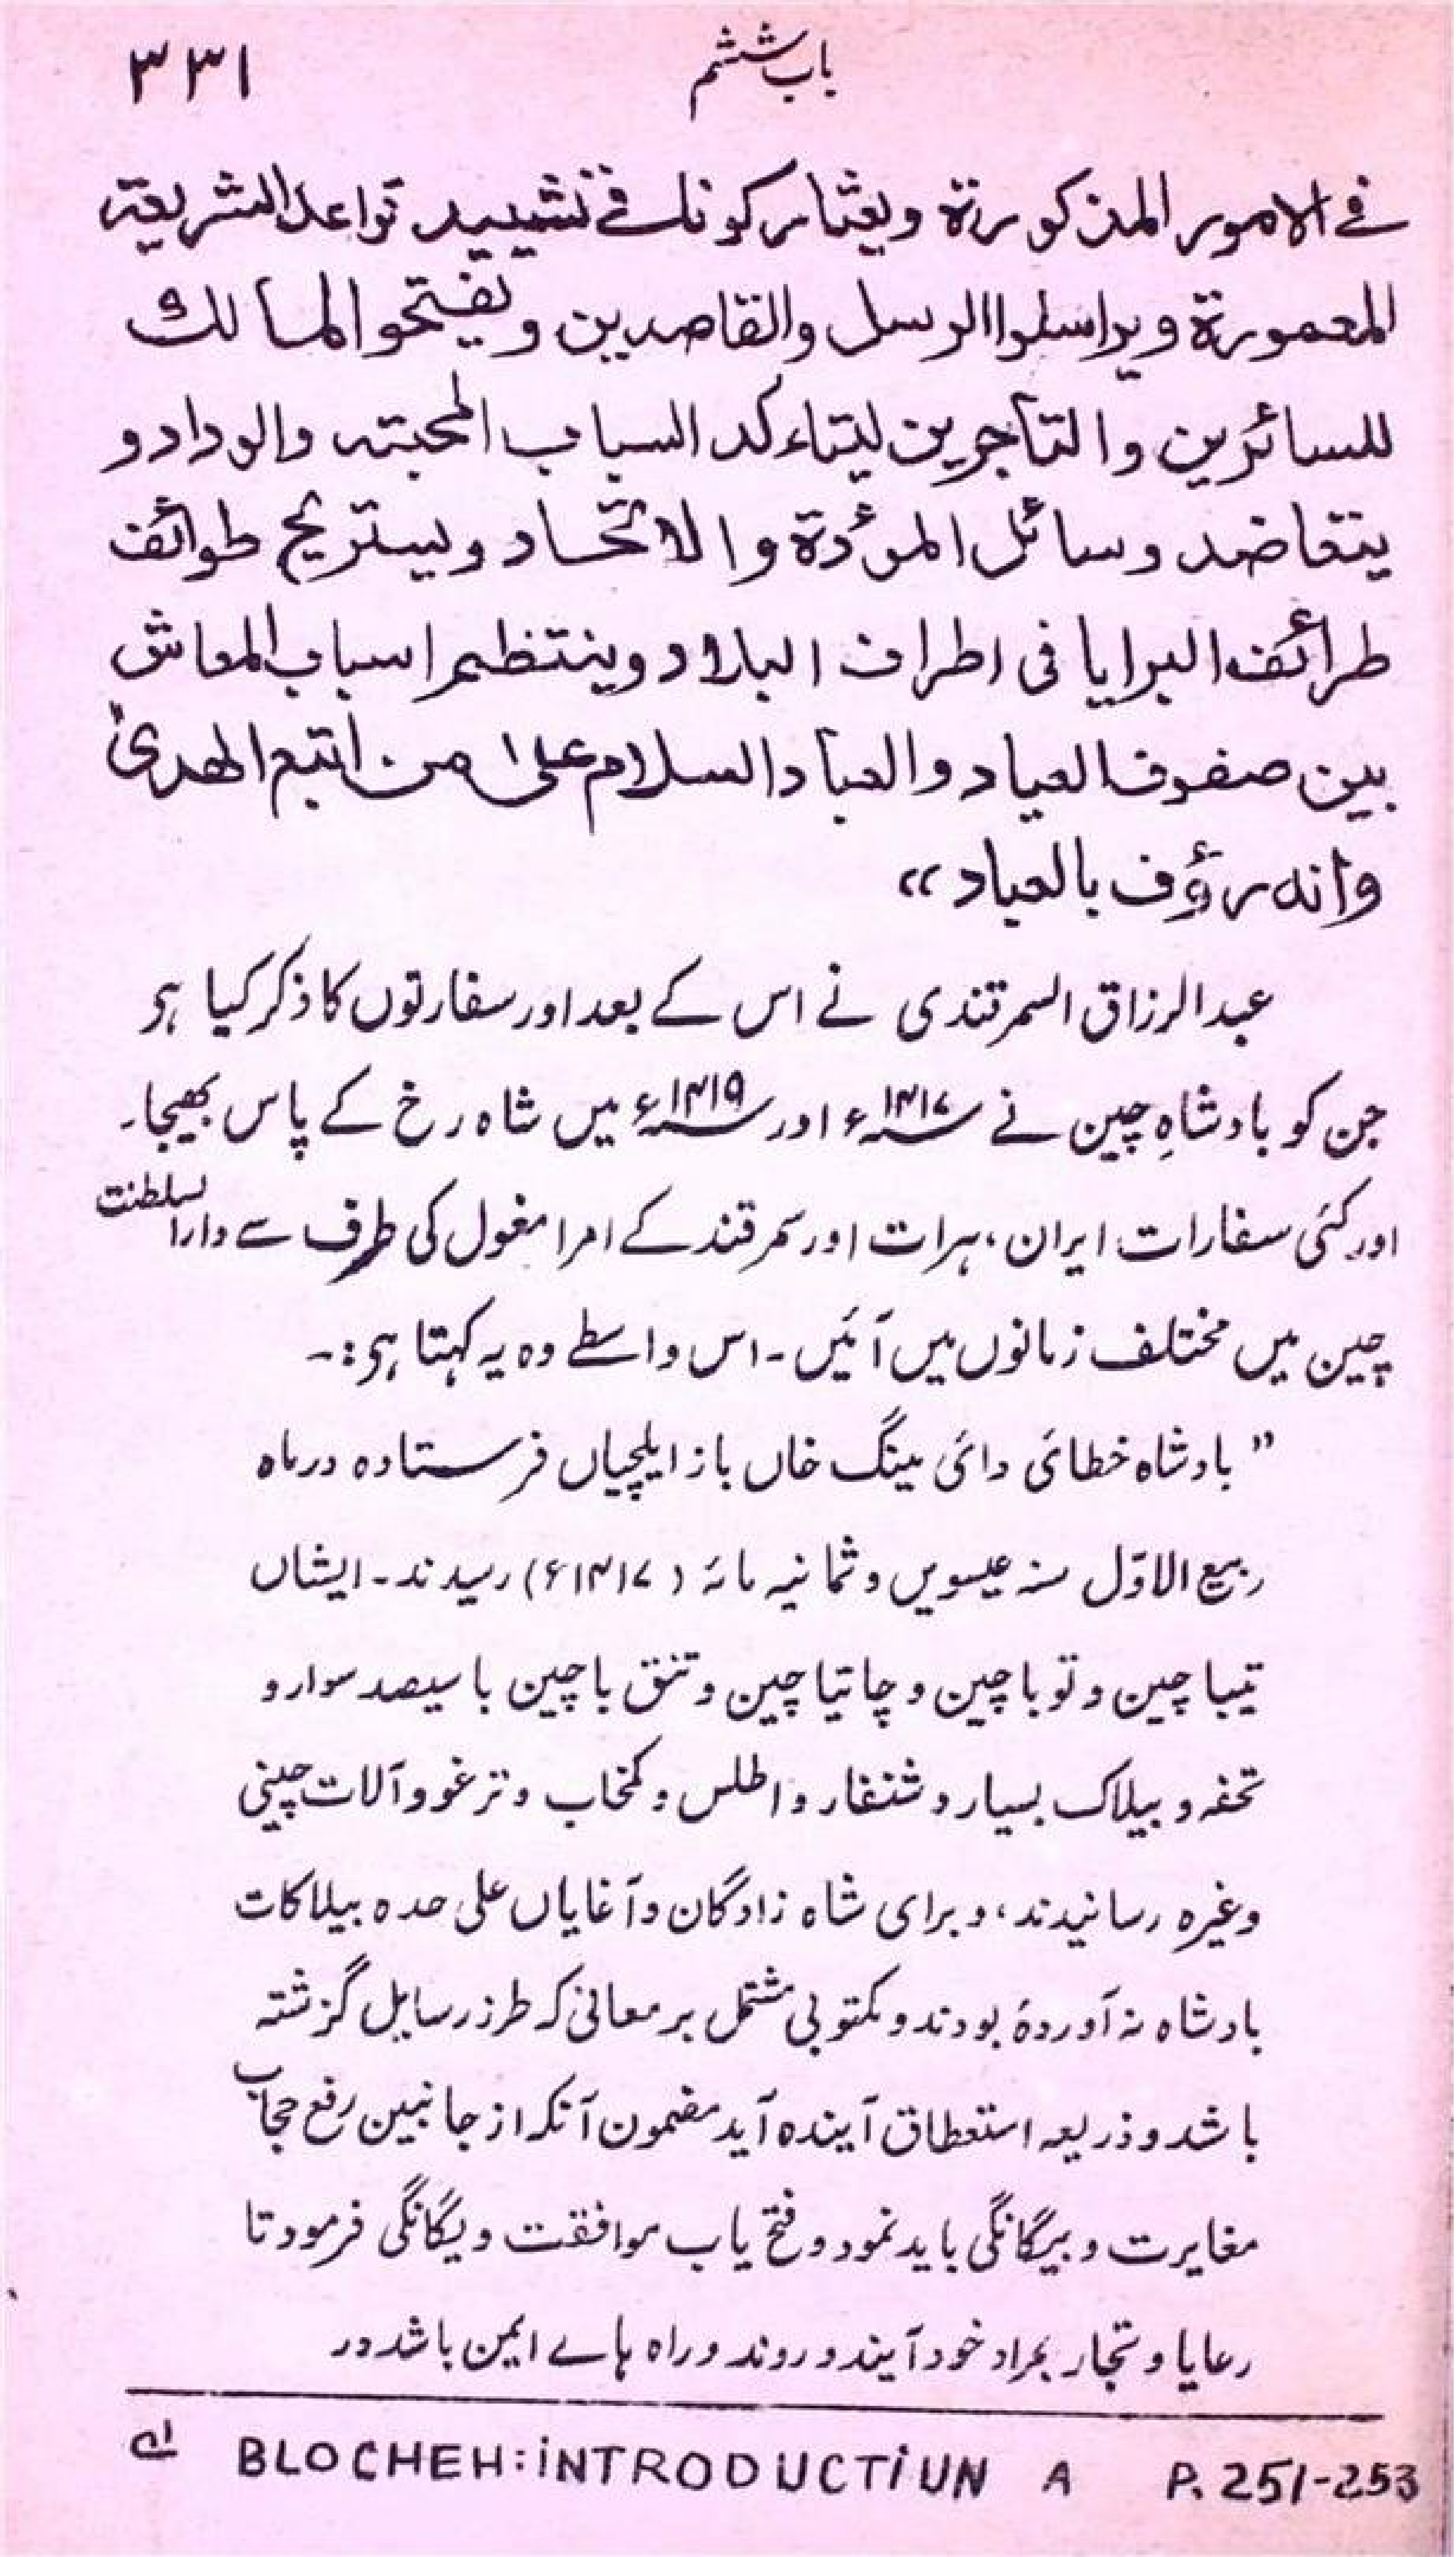 باب ششم ۳۳۱
فے الامور المذكورة ويعثاركونا فے تشييد قواعد الشريعة
المعمورة ويراسلوا الرسل والقاصدين ويفتحوا المسالك
للسائرين والتاجرين ليتاءكد السباب المحبته والوداد و
يتعاضد وسائل المودة والاتحاد ويستريح طوائف
طرائف البرايا فى اطراف البلاد وينتظم اسباب المعاش
بين صفوف العياد والعباد السلام على من اتبع الهدىٰ
وانه رؤف بالعباد»
عبدالرزاق السمرقندی نے اس کے بعد اور سفارتوں کا ذکر کیا ہی
جن کو بادشاہِ چین نے ۱۴۱۷ء اور ۱۴۱۹ء میں شاہ رخ کے پاس بھیجا۔
اور کئی سفارات ایران، ہرات اور سمرقند کے امرا مغول کی طرف سے دارالسلطنت
چین میں مختلف زمانوں میں آئیں۔ اس واسطے وہ یہ کہتا ہی:۔
” بادشاہ خطائی دائی مینگ خاں باز ایلچیاں فرستادہ در ماہ
ربیع الاوّل سنہ عیسویں و ثمانیہ مائہ (۱۴۱۷ء) رسیدند۔ ایشاں
تیبا چین و توبا چین و چاتیا چین و تنق باچین با سیصد سوار و
تحفہ و بیلاک بسیار و شنقار و اطلس و کمخاب و ترغو و آلات چینی
وغیرہ رسانیدند، و برای شاہ زادگان و آغایاں علی حدہ بیلاکات
بادشاہ نہ آوردۂ بودند و مکتوبی مشتمل بر معانی کہ طرز رسایل گزشتہ
باشد و ذریعہ استعطاق آیندہ آید مضمون آنکہ از جانبین رفع حجاب
مغایرت و بیگانگی باید نمود و فتح یاب موافقت و یگانگی فرمود تا
رعایا و تجار بمراد خود آیند و روند و راہ ہاے ایمن باشد در
ﻟﻪ BLOCHEH:iNTRODUCTiUN A P. 251-253